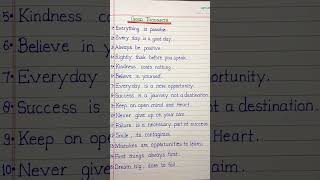 Good Thoughts
Everything is possible.
Every day is a good day.
Always be positive.
Rightly think before you speak.
Kindness costs nothing.
Believe in yourself.
Everyday is a new opportunity.
Success is a journey not a destination.
Keep on open mind and Heart.
Never give up on your aim.
Failure is a necessary part of success.
Smile, its contagious.
Mistakes are opportunities to learn.
First things always first.
Dream big, dare to fail.
5• Kindness
6• Believe in
7• Everyday
8• Success is
9• Keep on
10• Never give
opportunity.
a destination.
Heart.
aim.